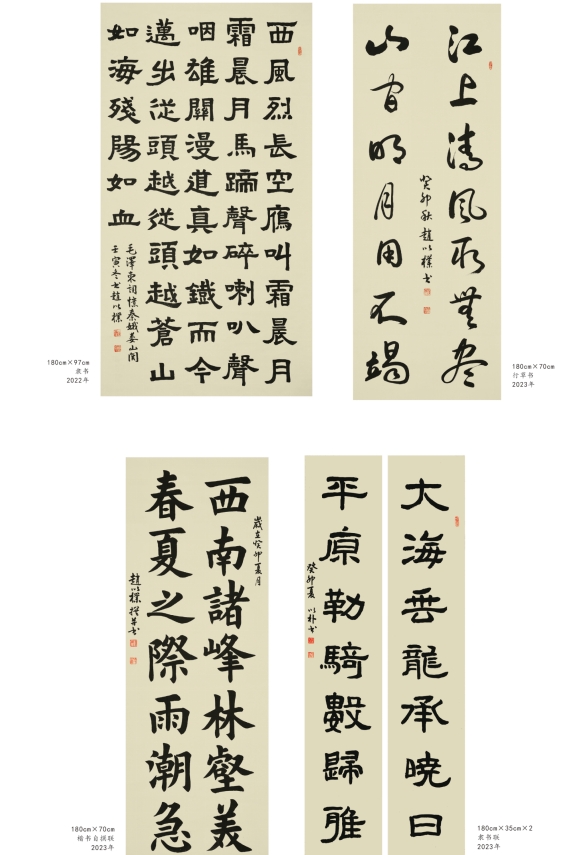 西風烈長空鴈叫霜晨月
霜晨月馬蹄聲碎喇叭聲
咽雄關漫道真如鐵而今
邁步從頭越從頭越蒼山
如海殘陽如血
毛澤東詞憶秦娥婁山關
壬寅冬书趙以樸
180cm×97cm
隶书
2022年
江上清風取無盡
山间明月用不竭
癸卯秋趙以樸书
180cm×70cm
行草书
2023年
歲在癸卯夏月
西南諸峰林壑美
春夏之際雨潮急
趙以樸撰并书
180cm×70cm
楷书自撰联
2023年
大海乘龍承曉日
平原勒騎數歸雅
癸卯夏以朴书
180cm×35cm×2
隶书联
2023年